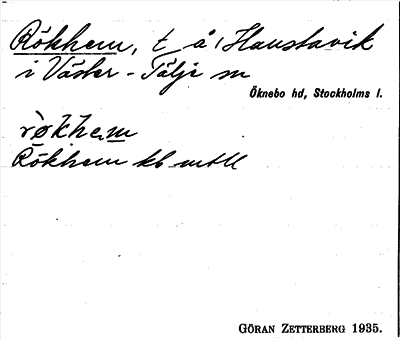 Rökhem, t å 1 Haustavik
i Väster-Tälje sn
Öknebo hd, Stockholms l.
rø̀khem
Rökhem kb mtll
GÖRAN ZETTERBERG 1935.